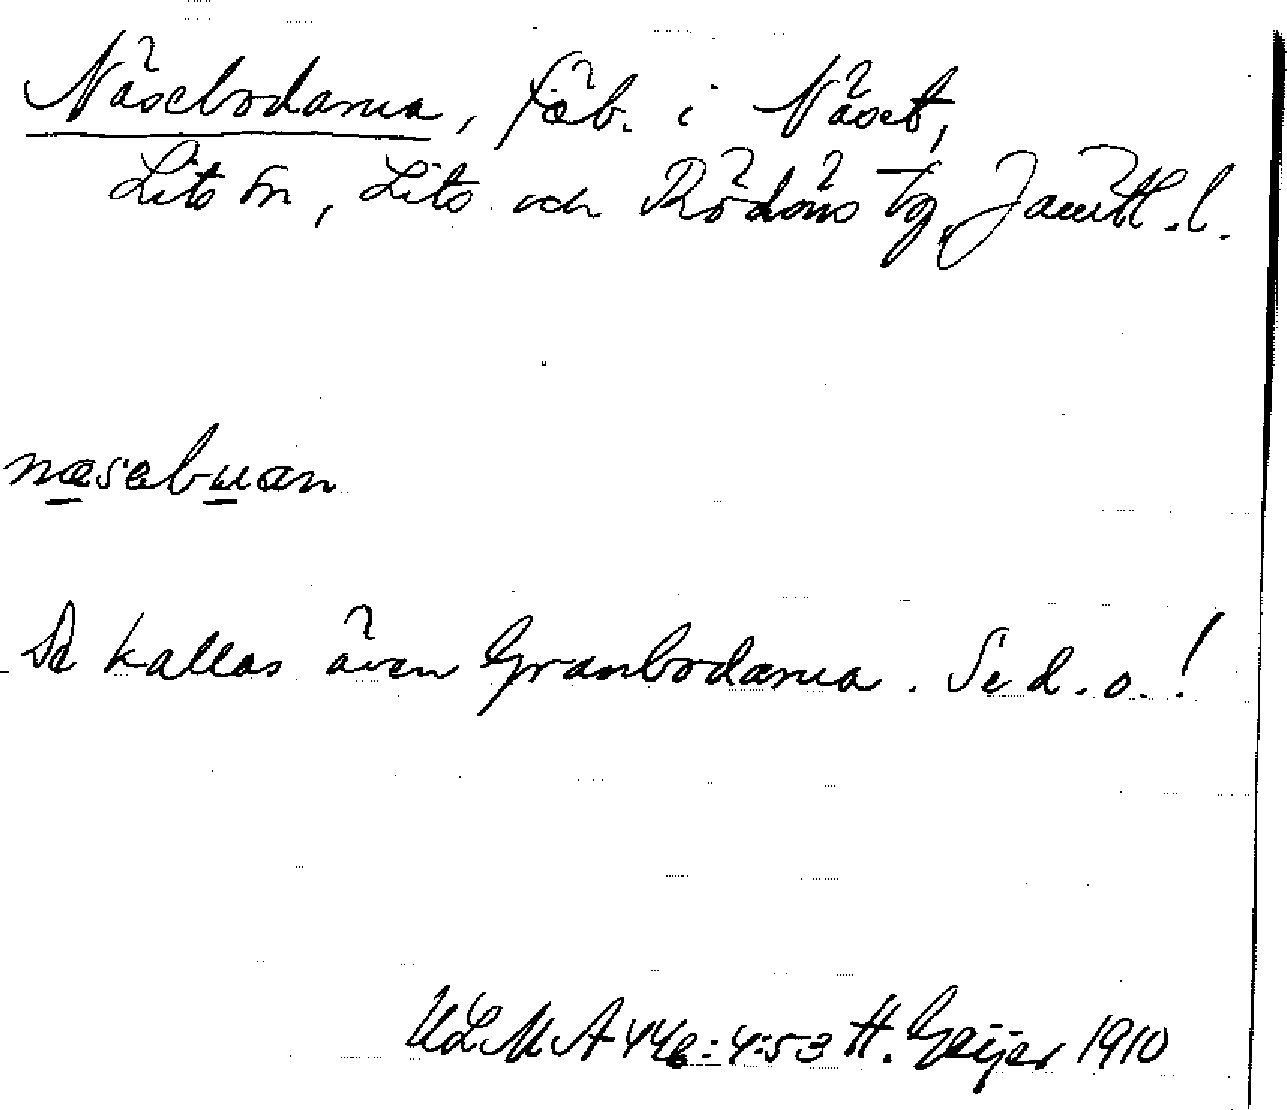 Näsebodarna, fäb. i Näset,
Lits sn, Lits och Rödöns tg, Jämtl. l.
næsabuan
De kallas även Granbodarna. Se d. o.!
ULMA 446:4:53 H. Geijer 1910